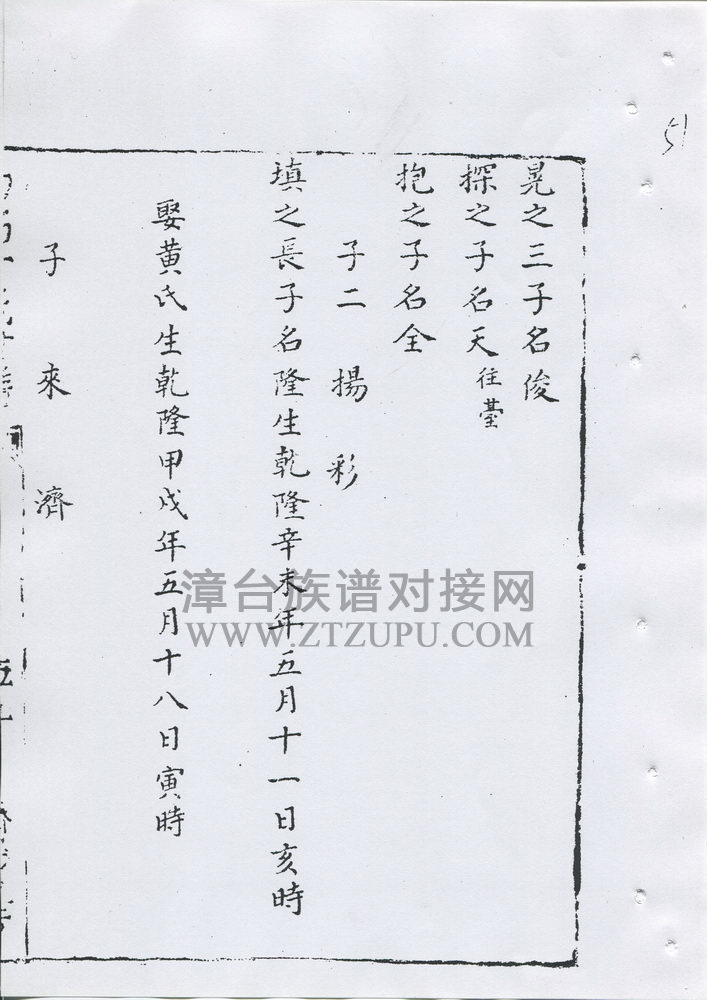 51
晃之三子名俊
探之子名天往臺
抱之子名全
子二 揚彩
填之長子名隆生乾隆辛未年五月十一日亥時
娶黄氏生乾隆甲戌年五月十八日寅時
子來濟
漳台族谱对接网
WWW.ZTZUPU.COM